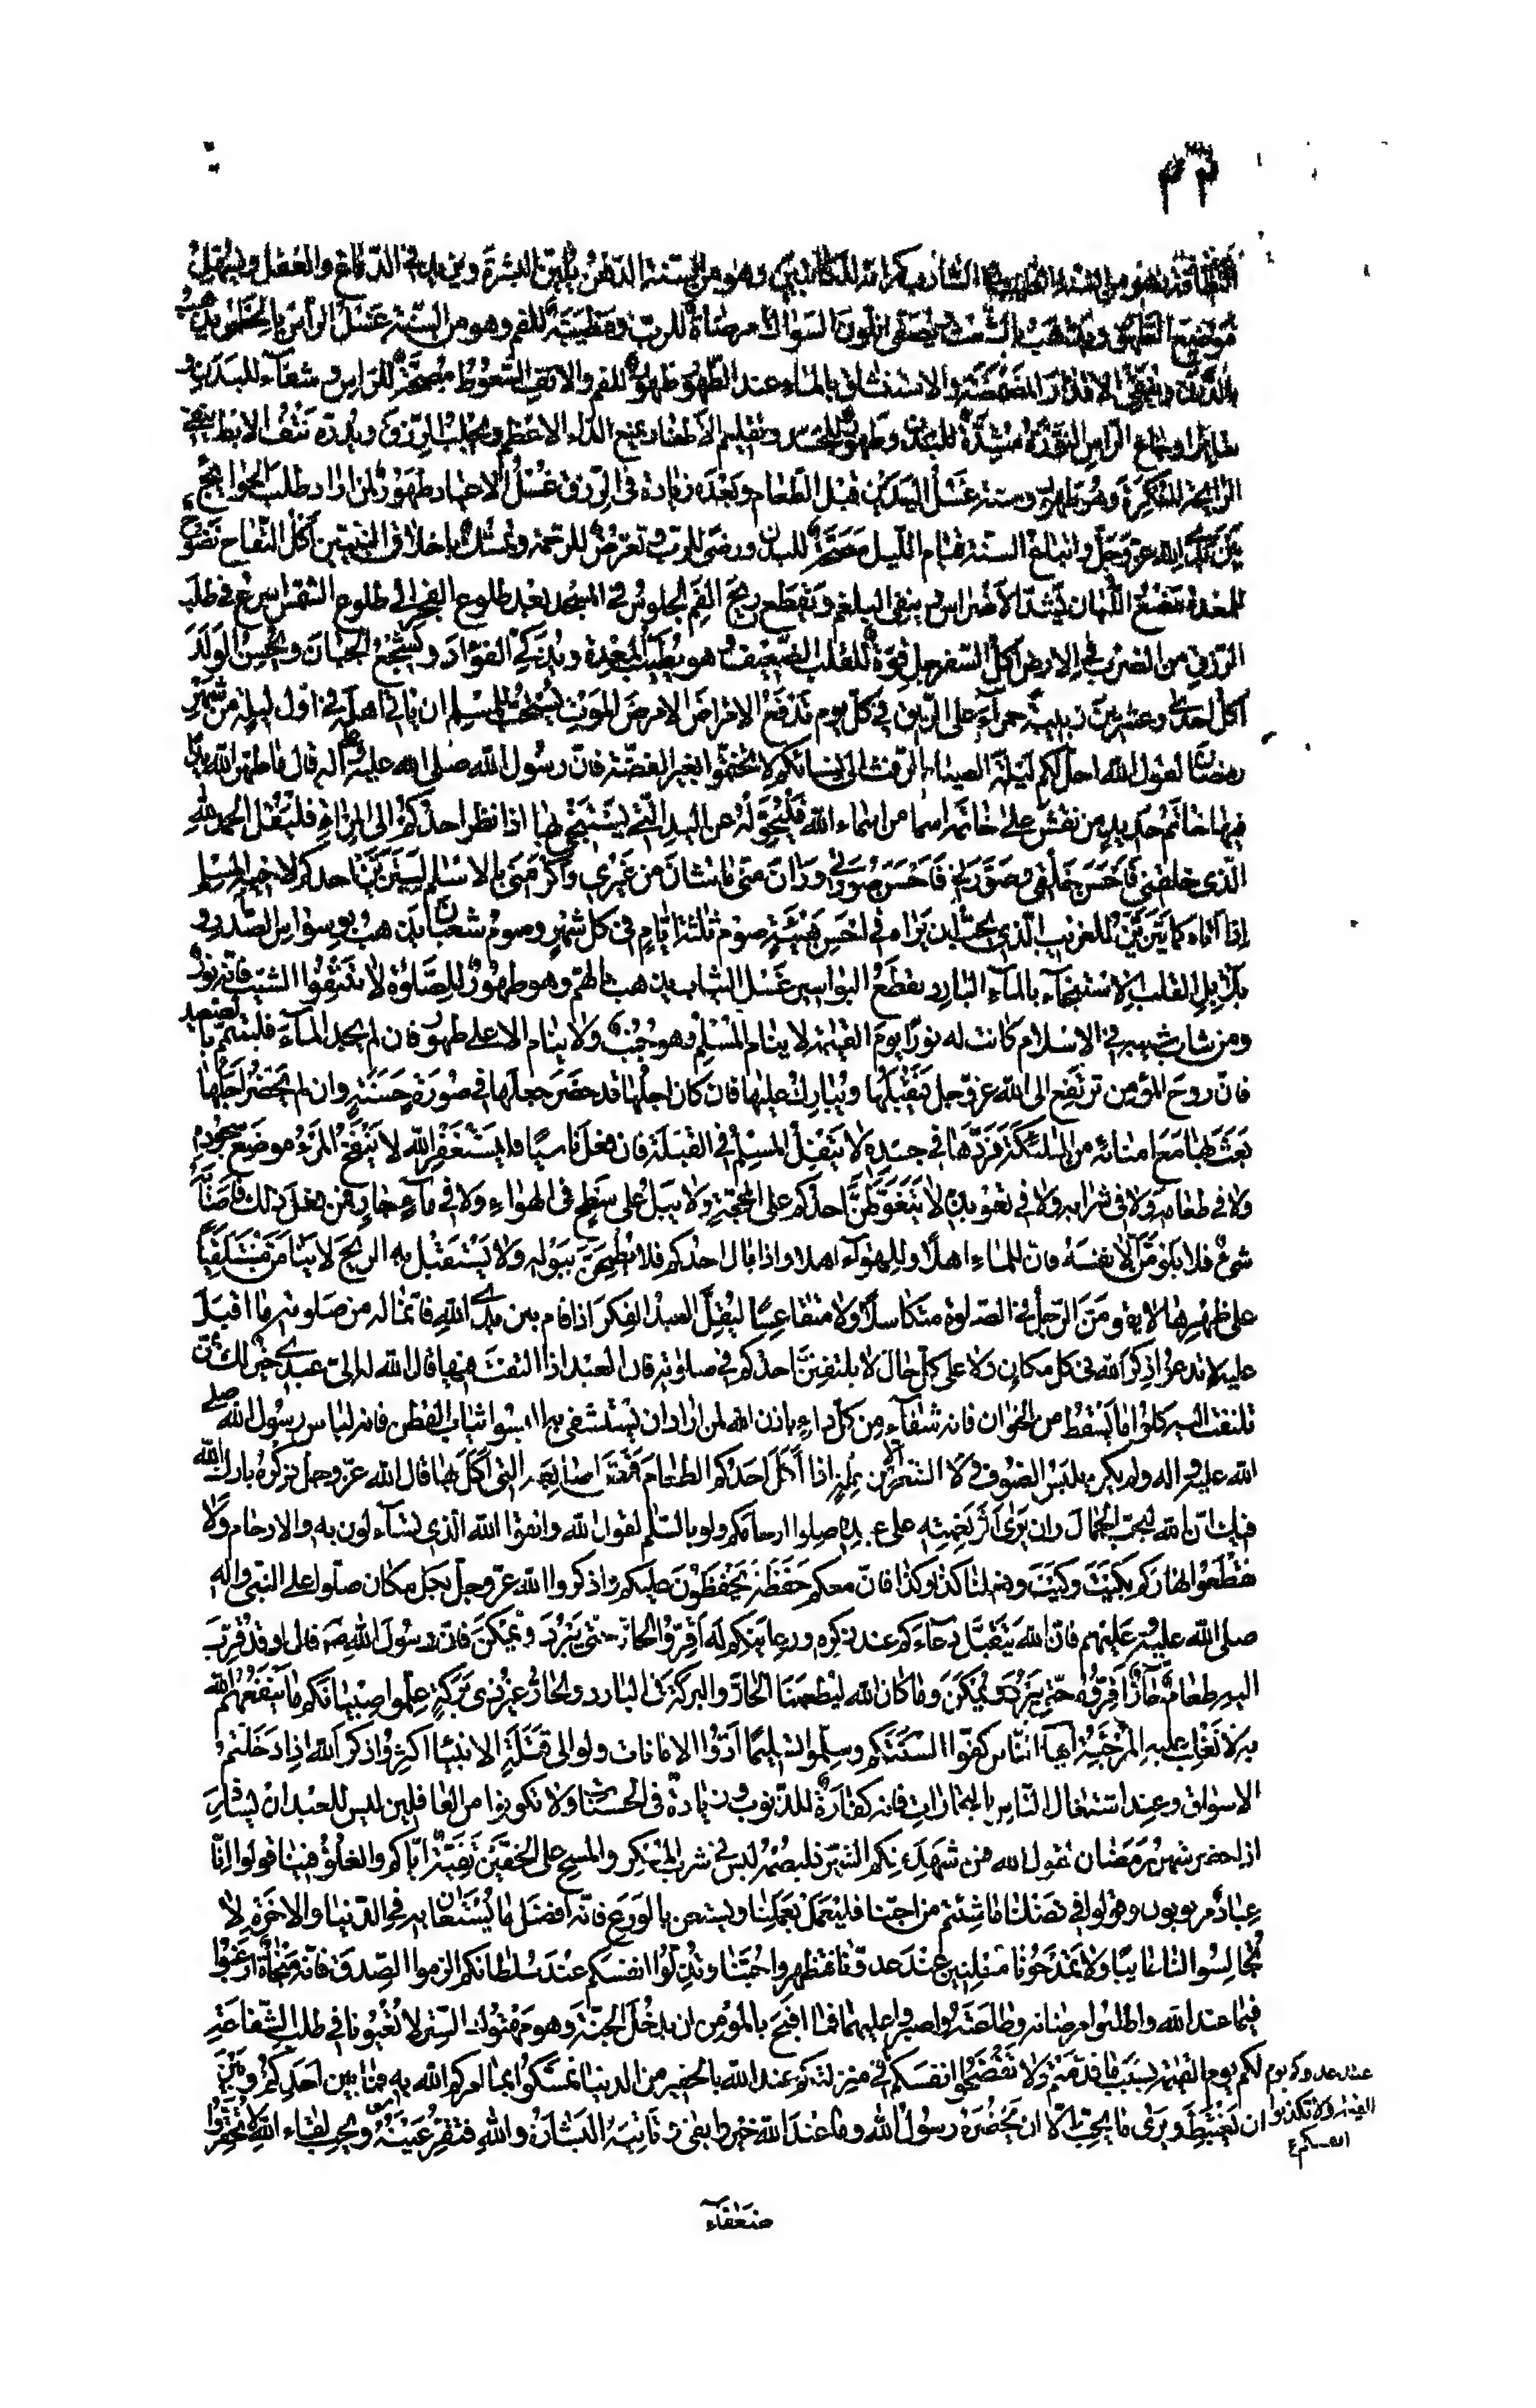 النظافة وهو من السنة الشارب كرامة للكاتبين وهو من السنة الدهن يلين البشرة ويزيد في الدماغ والعقل ويسهل
موضع الطهور ويذهب بالشعث ويصفي اللون السواك مرضاة للرب ومطيبة للفم وهو من السنة غسل الرأس بالخطمي يذهب
بالدرن وينقي الاقذار المضمضة والاستنشاق بالماء عند الطهور طهور للفم والانف السعوط مصحة للرأس وشفاء للبدن و
سائر اوجاع الرأس النورة مشدة للبدن وطهور للجسد وتقليم الاظفار يمنع الداء الاعظم ويجلب الرزق ويدره نتف الابط ينفي
الرائحة المنكرة وهو طهور وسنة غسل اليدين قبل الطعام وبعده زيادة في الرزق غسل الاعياد طهور لمن اراد طلب الحوائج
بين يدي الله عز وجل واتباع السنة قيام الليل مصحة للبدن ورضى للرب وتعرض للرحمة وتمسك باخلاق النبيين اكل التفاح نضوح
للمعدة مضغ اللبان يشد الاضراس وينفي البلغم ويقطع ريح الفم الجلوس في المسجد بعد طلوع الفجر الى طلوع الشمس اسرع في طلب
الرزق من الضرب في الارض اكل السفرجل قوة للقلب الضعيف وهو يطيب المعدة ويذكي الفؤاد ويشجع الجبان ويحسن الولد
اكل احدى وعشرين زبيبة حمراء على الريق في كل يوم تدفع الامراض الا مرض الموت يستحب للمسلم ان يأتي اهله في اول ليلة من شهر
رمضان لقول الله احل لكم ليلة الصيام الرفث الى نسائكم لا تختموا بغير الفضة فان رسول الله صلى الله عليه وآله قال ما طهر الله يدا
فيها خاتم حديد من نقش على خاتمه اسما من اسماء الله فليحوله عن اليد التي يستنجي بها اذا نظر احدكم الى المرآة فليقل الحمد لله
الذي خلقني فاحسن خلقي وصورني فاحسن صورتي وزان مني ما شان من غيري واكرمني بالاسلم ليتزين احدكم لاخيه المسلم
اذا اتاه كما يتزين للغريب الذي يحب ان يراه في احسن هيئة صوم ثلثة ايام في كل شهر وصوم شعبان يذهب بوسواس الصدر و
بلابل القلب الاستنجاء بالماء البارد يقطع البواسير غسل الثياب يذهب بالهم وهو طهور للصلوة لا تنتفوا الشيب فانه نور
ومن شاب شيبه في الاسلام كانت له نورا يوم القيمة لا ينام المسلم وهو جنب ولا ينام الا على طهور فان لم يجد الماء فليتيمم بالصعيد
فان روح المؤمن ترتفع الى الله عز وجل فيقبلها ويبارك عليها فان كان اجلها قد حضر جعلها في صورة حسنة وان لم يحضر اجلها
بعث بها مع امنائه من الملئكة فردها في جسده لا يتفل المسلم في القبلة فان فعل ناسيا فليستغفر الله لا ينفخ المرء موضع سجوده
ولا في طعامه ولا في شرابه ولا في تعويذه لا يتغوطن احدكم على المحجة ولا يبل على سطح في الهواء ولا في ماء جار فمن فعل ذلك فاصابه
شيء فلا يلومن الا نفسه فان للماء اهلا وللهواء اهلا واذا بال احدكم فلا يطمحن ببوله ولا يستقبل به الريح لا ينامن مستلقيا
على ظهره لا يقومن الرجل في الصلوة متكاسلا ولا متقاعسا ليقل العبد الفكر اذا قام بين يدي الله فانما له من صلوته ما اقبل
عليه لا تدعوا ذكر الله في كل مكان ولا على كل حال لا يلتفتن احدكم في صلوته فان العبد اذا التفت فيها قال الله له الي عبدي خير لك ممن
تلتفت اليه كلوا ما يسقط من الخوان فانه شفاء من كل داء باذن الله لمن اراد ان يستشفي به البسوا ثياب القطن فانه لباس رسول الله صلى
الله عليه واله ولم يكن يلبس الصوف ولا الشعر الا من علة اذا اكل احدكم الطعام فمص اصابعه التي اكل بها قال الله عز وجل ذكره بارك الله
فيك ان الله يحب الجمال وان يرى اثر نعمته على عبده صلوا ارحامكم ولو بالسلم لقول الله واتقوا الله الذي تساءلون به والارحام ولا
تقطعوا نهاركم بكيت وكيت وفعلنا كذا وكذا فان معكم حفظة يحفظون عليكم واذكروا الله عز وجل بكل مكان صلوا على النبي واله
صلى الله عليه وعليهم فان الله يتقبل دعاءكم عند ذكره ورعايتكم له اقروا الحار حتى يبرد ويمكن فان رسول الله ص قال وقد قرب
اليه طعام حار اقروه حتى يبرد ويمكن وما كان الله ليطعمنا الحار والبركة في البارد والحار غير ذي بركة علموا صبيانكم ما ينفعهم الله
به لا تغلب عليه المرجئة ايها الناس كفوا السنتكم وسلموا تسليما ادوا الامانات ولو الى قتلة الانبيا اكثروا ذكر الله اذا دخلتم
الاسواق وعند اشتغال الناس بالتجارات فانه كفارة للذنوب وزيادة في الحسنات ولا تكونوا من الغافلين ليس للعبد ان يسافر
اذا حضر شهر رمضان لقول الله فمن شهد منكم الشهر فليصمه ليس في شرب المسكر والمسح على الخفين تقية اياكم والغلو فينا قولوا انا
عباد مربوبون وقولوا في فضلنا ما شئتم من احبنا فليعمل بعملنا ويستعن بالورع فانه افضل ما يستعان به في الدنيا والاخرة لا
تجالسوا لنا عايبا ولا تمدحونا معلنين عند عدونا فتظهروا حبنا وتذلوا انفسكم عند سلطانكم الزموا الصدق فانه منجاة ارغبوا
فيما عند الله واطلبوا مرضاته وطاعته واصبروا عليهما فما اقبح بالمؤمن ان يدخل الجنة وهو مهتوك الستر لا تعيونا في طلب الشفاعة
لكم يوم القيمة بسبب ما قدمتم ولا تفضحوا انفسكم في منزلتكم عند الله بالحقير من الدنيا تمسكوا بما امركم الله به فما بين احدكم وبين
ان يغتبط ويرى ما يحب الا ان يحضره رسول الله وما عند الله خير وابقى وتاتيه البشارة والله فتقر عينه ويحب لقاء الله لا تحقروا
عند عدوكم يوم
القيمة ولا تكذبوا
انفسكم
ضعفاء